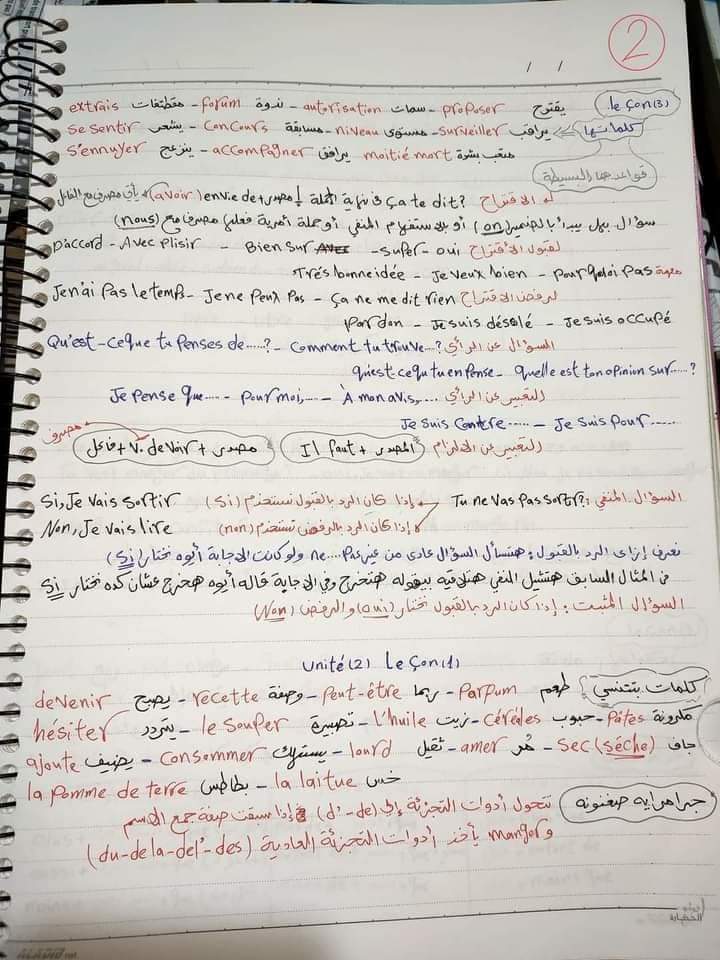 2
/ /
leçon(3) يقترح proposer - سمات autorisation - ندوة forum - مقتطفات extrais
كلماتها يراقب surveiller - مستوى niveau - مسابقة concours - يشعر se sentir
متعب بشدة moitié mort يرافق accompagner - ينزعج s'ennuyer
قواعدها البسيطة
الاقتراح ça te dit? في نهاية الجملة / مصدر + envie de (avoir) يأتي مصرف مع الفاعل
سؤال يبدأ بالضمير (on) أو بالاستفهام المنفي أو جملة أمرية فعلها مصرف مع (nous)
لقبول الاقتراح oui - super - Bien sur - Avec plisir - D'accord
Pourquoi pas - Je veux bien - Trés bonne idée
لرفض الاقتراح Ça ne me dit rien - Je ne peux pas - Je n'ai pas le temps
Je suis occupé - Je suis désolé - Pardon
السؤال عن الرأي Comment tu trouve...? - Qu'est-ce que tu penses de.....?
quelle est ton opinion sur.....? - qu'est ce qu tu en pense
التعبير عن الرأي À mon avis,.... - Pour moi,.... - Je pense que....
Je suis pour ..... - Je suis contre .....
التعبير عن الالزام المصدر + Il faut مصدر + V. devoir + فاعل مصرف
السؤال المنفي: Tu ne vas pas sortir? إذا كان الرد بالقبول نستخدم (si) Si, Je vais sortir
إذا كان الرد بالرفض نستخدم (non) Non, Je vais lire
نعرف إزاى الرد بالقبول: هتسأل السؤال عادي من غير ne....pas ولو كانت الاجابة أيوه نختار (Si)
في المثال السابق هتشيل المنفي هتلاقيه بيقوله هتخرج وفي الاجابة قاله أيوه هخرج عشان كده نختار Si
السؤال المثبت: إذا كان الرد بالقبول نختار (oui) والرفض (Non)
Unité(2) Leçon(1)
كلمات بتتنسي طعم parpum - ربما peut-être - وصفة recette - يصبح devenir
مكرونة Pâtes - حبوب céréales - زيت l'huile - تصبيرة le souper - يتردد hésiter
جاف sec (séche) - مُر amer - ثقيل lourd - يستهلك consommer - يضيف ajoute
خس la laitue - بطاطس la pomme de terre
جرامراية صغنونه تتحول أدوات التجزئة إلى (d' - de) إذا سبقت صفة جمع الاسم
و manger يأخذ أدوات التجزئة العادية (du - de la - del' - des)